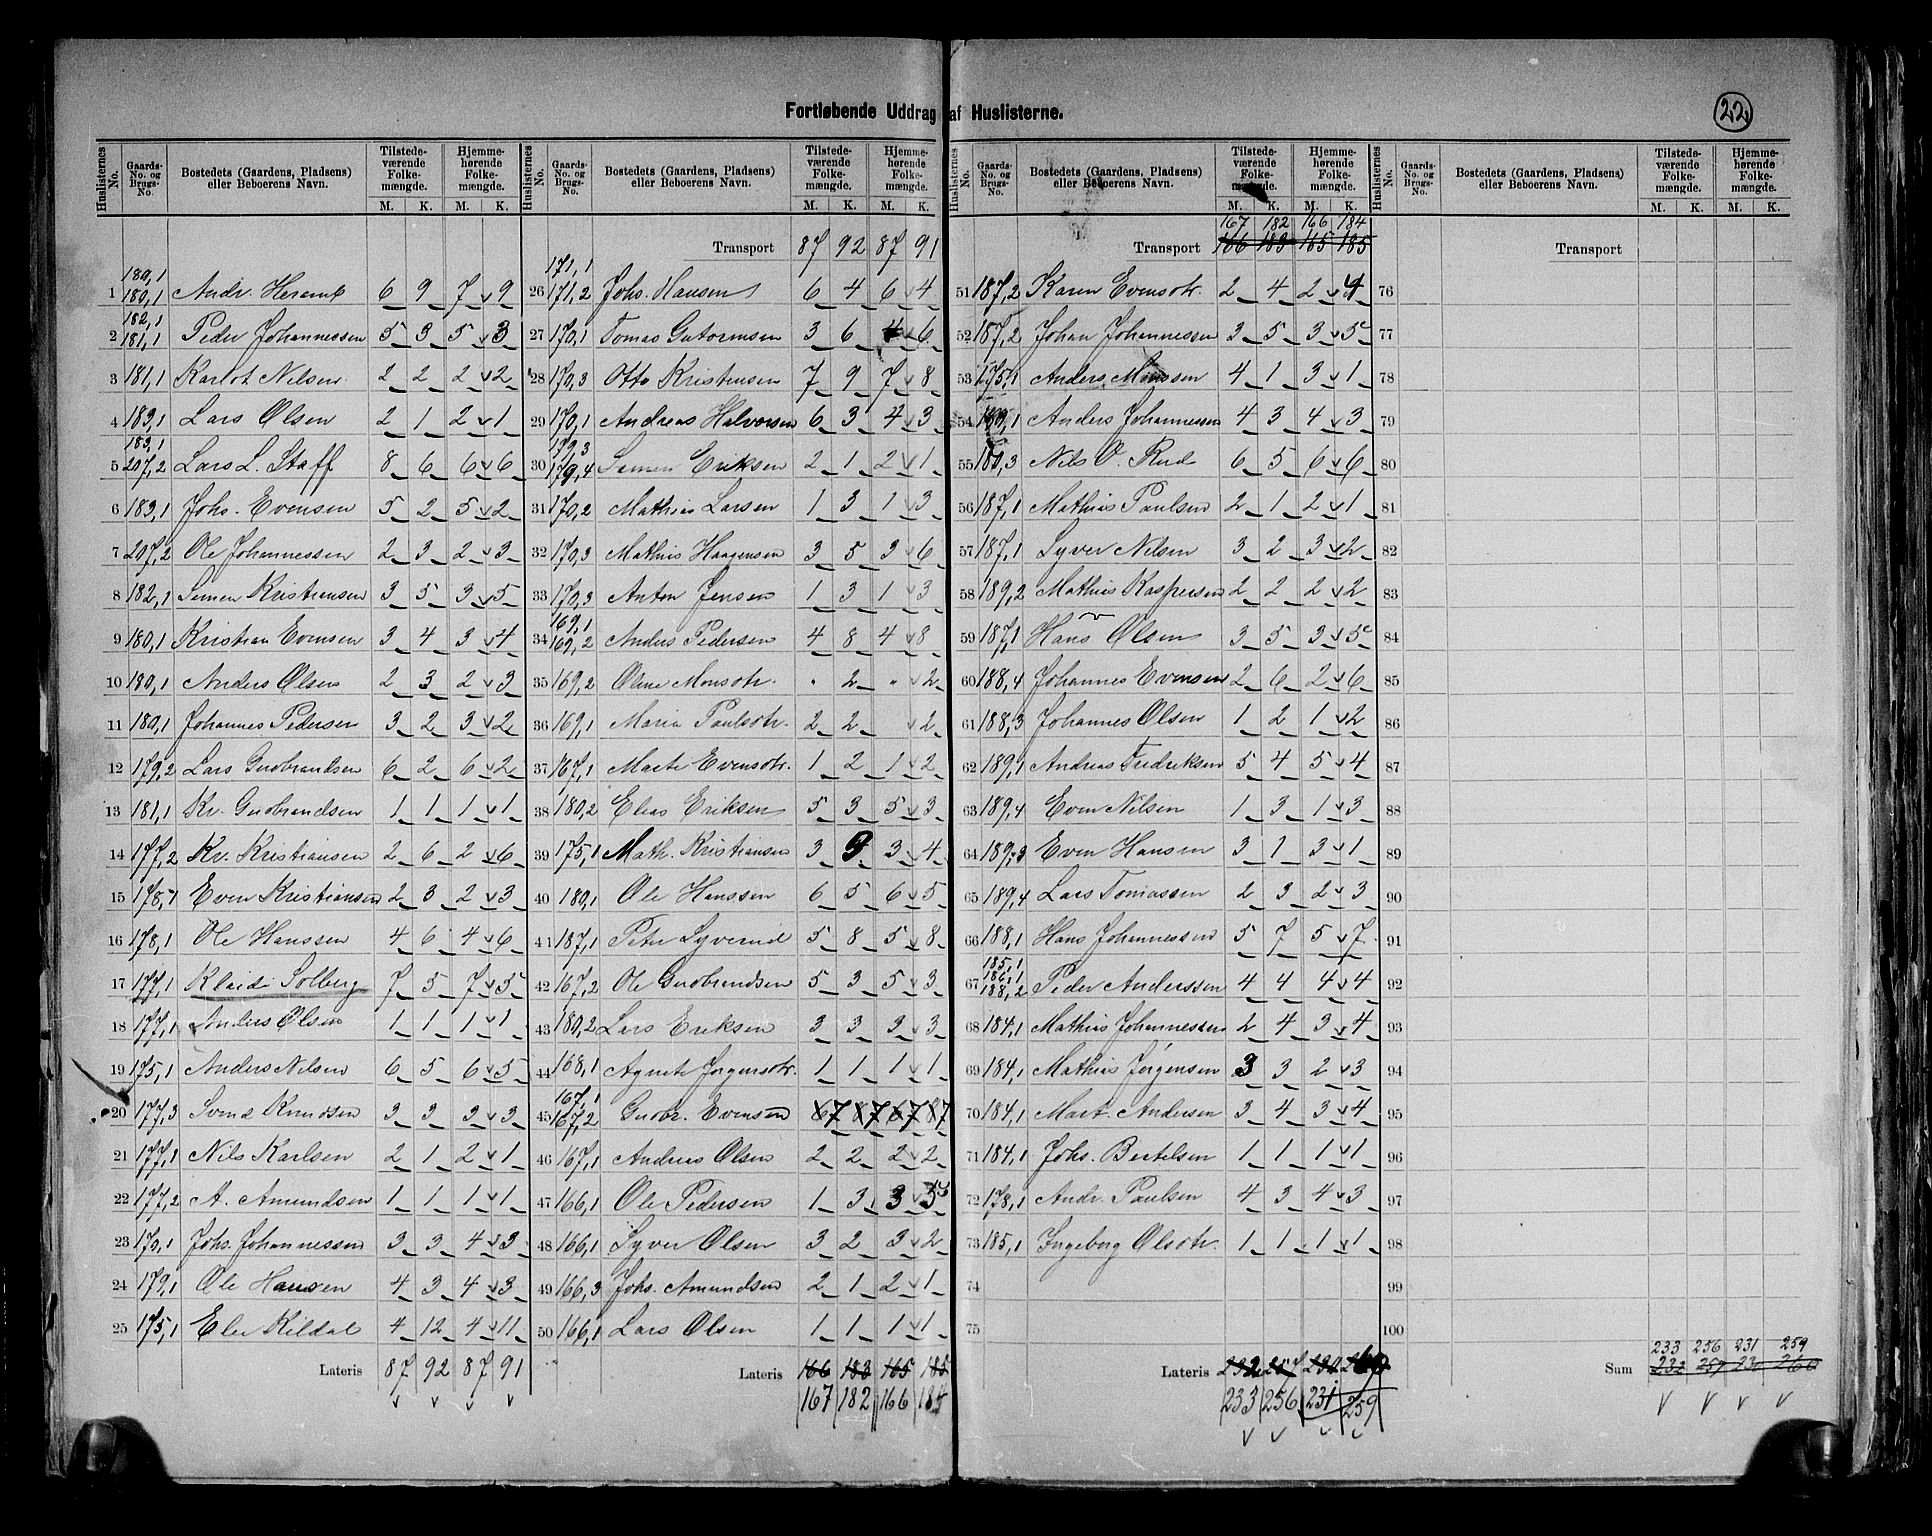 Fortløbende Uddrag af Huslisterne.
22
Huslisternes No. | Gaards-No. og Brugs-No. | Bostedets (Gaardens, Pladsens) eller Beboerens Navn. | Tilstedeværende Folkemængde. M. K. | Hjemmehørende Folkemængde. M. K.
1 180,1 180,1 Andr. Heramb 6 9 7 9
2 182,1 181,1 Peder Johannessen 5 3 5 3
3 181,1 Karlot Nilsen 2 2 2 2
4 183,1 Lars Olsen 2 1 2 1
5 183,1 207,2 Lars L. Staff 8 6 6 6
6 183,1 Johs. Evensen 5 2 5 2
7 207,2 Ole Johannessen 2 3 2 3
8 182,1 Simen Kristiansen 3 5 3 5
9 180,1 Kristian Evensen 3 4 3 4
10 180,1 Anders Olsen 2 3 2 3
11 180,1 Johannes Pedersen 3 2 3 2
12 179,2 Lars Gudbrandsen 6 2 6 2
13 181,1 Kr. Gudbrandsen 1 1 1 1
14 177,2 Kr. Kristiansen 2 6 2 6
15 178,1 Even Kristiansen 2 3 2 3
16 178,1 Ole Hanssen 4 6 4 6
17 177,1 Solberg 7 5 7 5
18 177,1 Anders Olsen 1 1 1 1
19 175,1 Anders Nilsen 6 5 6 5
20 177,3 Svend Knudsen 3 3 3 3
21 177,1 Nils Karlsen 2 1 2 1
22 177,2 A. Amundsen 1 1 1 1
23 170,1 Johs. Johannessen 3 3 4 3
24 179,1 Ole Hansen 4 3 4 3
25 175,1 Kildal 4 12 4 11
Lateris 87 92 87 91
Huslisternes No. | Gaards-No. og Brugs-No. | Bostedets (Gaardens, Pladsens) eller Beboerens Navn. | Tilstedeværende Folkemængde. M. K. | Hjemmehørende Folkemængde. M. K.
Transport 87 92 87 91
26 171,1 171,2 Johs. Hansen 6 4 6 4
27 170,1 Tomas Gutormsen 3 6 4 6
28 170,3 Otto Kristensen 7 9 7 8
29 170,1 Andreas Halvorsen 6 3 4 3
30 179,3 179,4 Simen Eriksen 2 1 2 1
31 170,2 Mathias Larsen 1 3 1 3
32 170,3 Mathis Haagensen 3 5 3 6
33 170,3 Anton Jensen 1 3 1 3
34 169,1 169,2 Anders Pedersen 4 8 4 8
35 169,2 Oline Monsdtr. " 2 " 2
36 169,1 Maria Paulsdtr. 2 2 2
37 167,1 Marte Evensdtr. 1 2 1 2
38 180,2 Elias Eriksen 5 3 5 3
39 175,1 Math. Kristiansen 3 9 3 4
40 180,1 Ole Hanssen 6 5 6 5
41 187,1 Peter Syverud 5 8 5 8
42 167,2 Ole Gudbrandsen 5 3 5 3
43 180,2 Lars Eriksen 3 3 3 3
44 168,1 Agnete Jørgensdtr. 1 1 1 1
45 167,1 167,2 Gudbr. Evensen 67 87 67 87
46 167,1 Andreas Olsen 2 2 2 2
47 166,1 Ole Pedersen 1 3 3 3
48 166,1 Syver Olsen 3 2 3 2
49 166,3 Johs. Amundsen 2 1 2 1
50 166,1 Lars Olsen 1 1 1 1
Lateris 166 183 165 185
167 182 166 184
Huslisternes No. | Gaards-No. og Brugs-No. | Bostedets (Gaardens, Pladsens) eller Beboerens Navn. | Tilstedeværende Folkemængde. M. K. | Hjemmehørende Folkemængde. M. K.
167 182 166 184
Transport 166 183 165 185
51 187,2 Karen Evensdtr. 2 4 2 4
52 187,2 Johan Johannessen 3 5 3 5
53 175,1 Anders Monssen 4 1 3 1
54 Anders Johannessen 4 3 4 3
55 180,3 Nils O. Rud 6 5 6 6
56 187,1 Mathias Paulsen 2 1 2 1
57 187,1 Syver Nilsen 3 2 3 2
58 189,2 Mathias Kaspersen 2 2 2 2
59 187,1 Hans Olsen 3 5 3 5
60 188,4 Johannes Evensen 2 6 2 6
61 188,3 Johannes Olsen 1 2 1 2
62 189,1 Andreas Fredriksen 5 4 5 4
63 189,4 Even Nilsen 1 3 1 3
64 189,3 Even Hansen 3 1 3 1
65 189,4 Lars Tomassen 2 3 2 3
66 188,1 Hans Johannessen 5 7 5 7
67 185,1 186,1 188,2 Peder Anderssen 4 4 4 4
68 184,1 Mathias Johannessen 2 4 3 4
69 184,1 Mathias Jørgensen 3 3 2 3
70 184,1 Mart. Andersen 3 4 3 4
71 184,1 Johs. Bertelsen 1 1 1 1
72 178,1 Andr. Paulsen 4 3 4 3
73 185,1 Ingeborg Olsdtr. 1 1 1 1
74
75
Lateris 232 257 230 260
233 256 231 259
Huslisternes No. | Gaards-No. og Brugs-No. | Bostedets (Gaardens, Pladsens) eller Beboerens Navn. | Tilstedeværende Folkemængde. M. K. | Hjemmehørende Folkemængde. M. K.
Transport
76
77
78
79
80
81
82
83
84
85
86
87
88
89
90
91
92
93
94
95
96
97
98
99
100
233 256 231 259
Sum 232 257 230 260